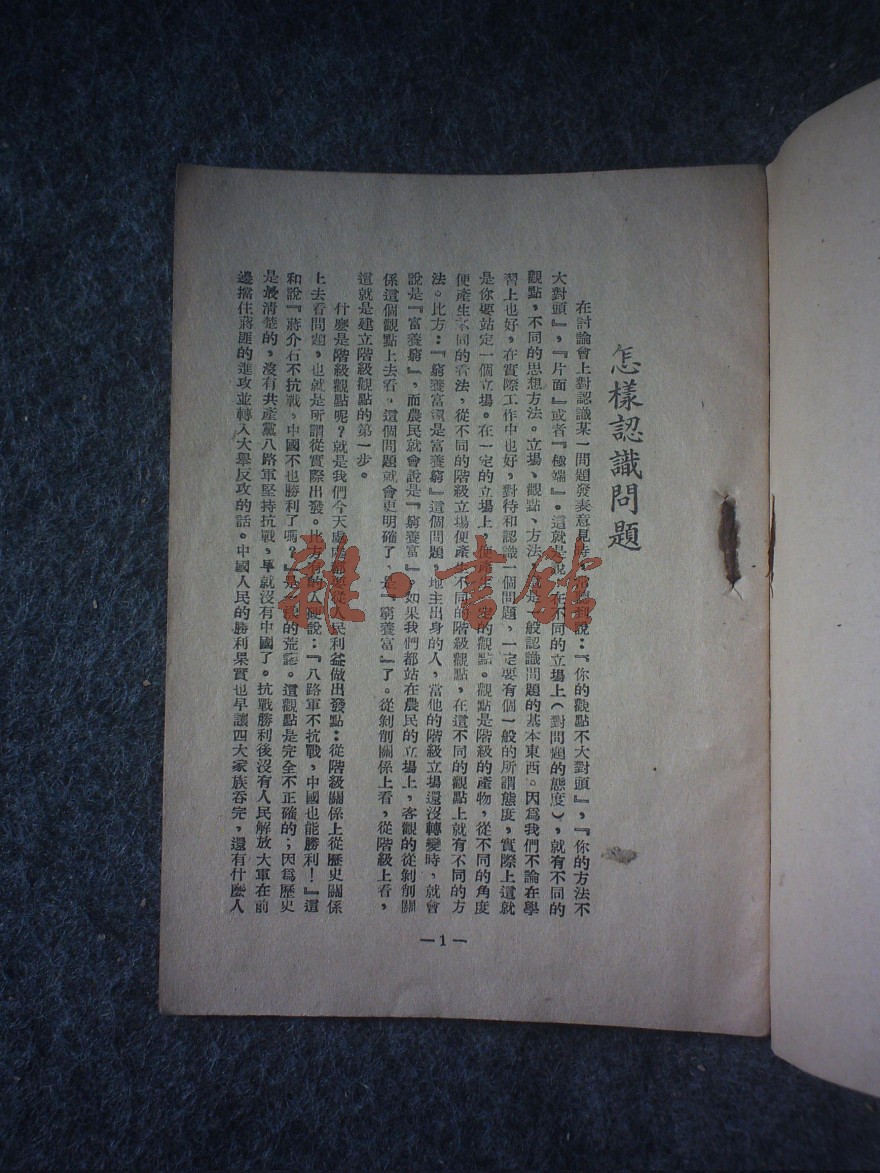 怎樣認識問題
在討論會上對認識某一問題發表意見時，說：『你的觀點不大對頭』，『你的方法不
大對頭』，『片面』或者『極端』。這就是說，在不同的立場上（對問題的態度），就有不同的
觀點，不同的思想方法。立場、觀點、方法，就是一般認識問題的基本東西。因爲我們不論在學
習上也好，在實際工作中也好，對待和認識一個問題，一定要有個一般的所謂態度，實際上這就
是你要站定一個立場。在一定的立場上，便產生一定的觀點。觀點是階級的產物，從不同的角度
便產生不同的看法，從不同的階級立場便產生不同的階級觀點，在這不同的觀點上就有不同的方
法。比方：『窮養富還是富養窮』這個問題，地主出身的人，當他的階級立場還沒轉變時，就會
說是『富養窮』，而農民就會說是『窮養富』。如果我們都站在農民的立場上，客觀的從剝削關
係這個觀點上去看，這個問題就會更明確了，是『窮養富』了。從剝削關係上看，從階級上看，
這就是建立階級觀點的第一步。
什麼是階級觀點呢？就是我們今天處處都要從人民利益做出發點：從階級關係上從歷史關係
上去看問題，也就是所謂從實際出發。比方有的人硬說：『八路軍不抗戰，中國也能勝利！』還
和說『蔣介石不抗戰，中國不也勝利了嗎？』是一樣的荒謬。這觀點是完全不正確的；因爲歷史
是最清楚的，沒有共產黨八路軍堅持抗戰，早就沒有中國了。抗戰勝利後沒有人民解放大軍在前
邊擋住蔣匪的進攻並轉入大舉反攻的話。中國人民的勝利果實也早讓四大家族吞完，還有什麼人
—1—
雜·書館